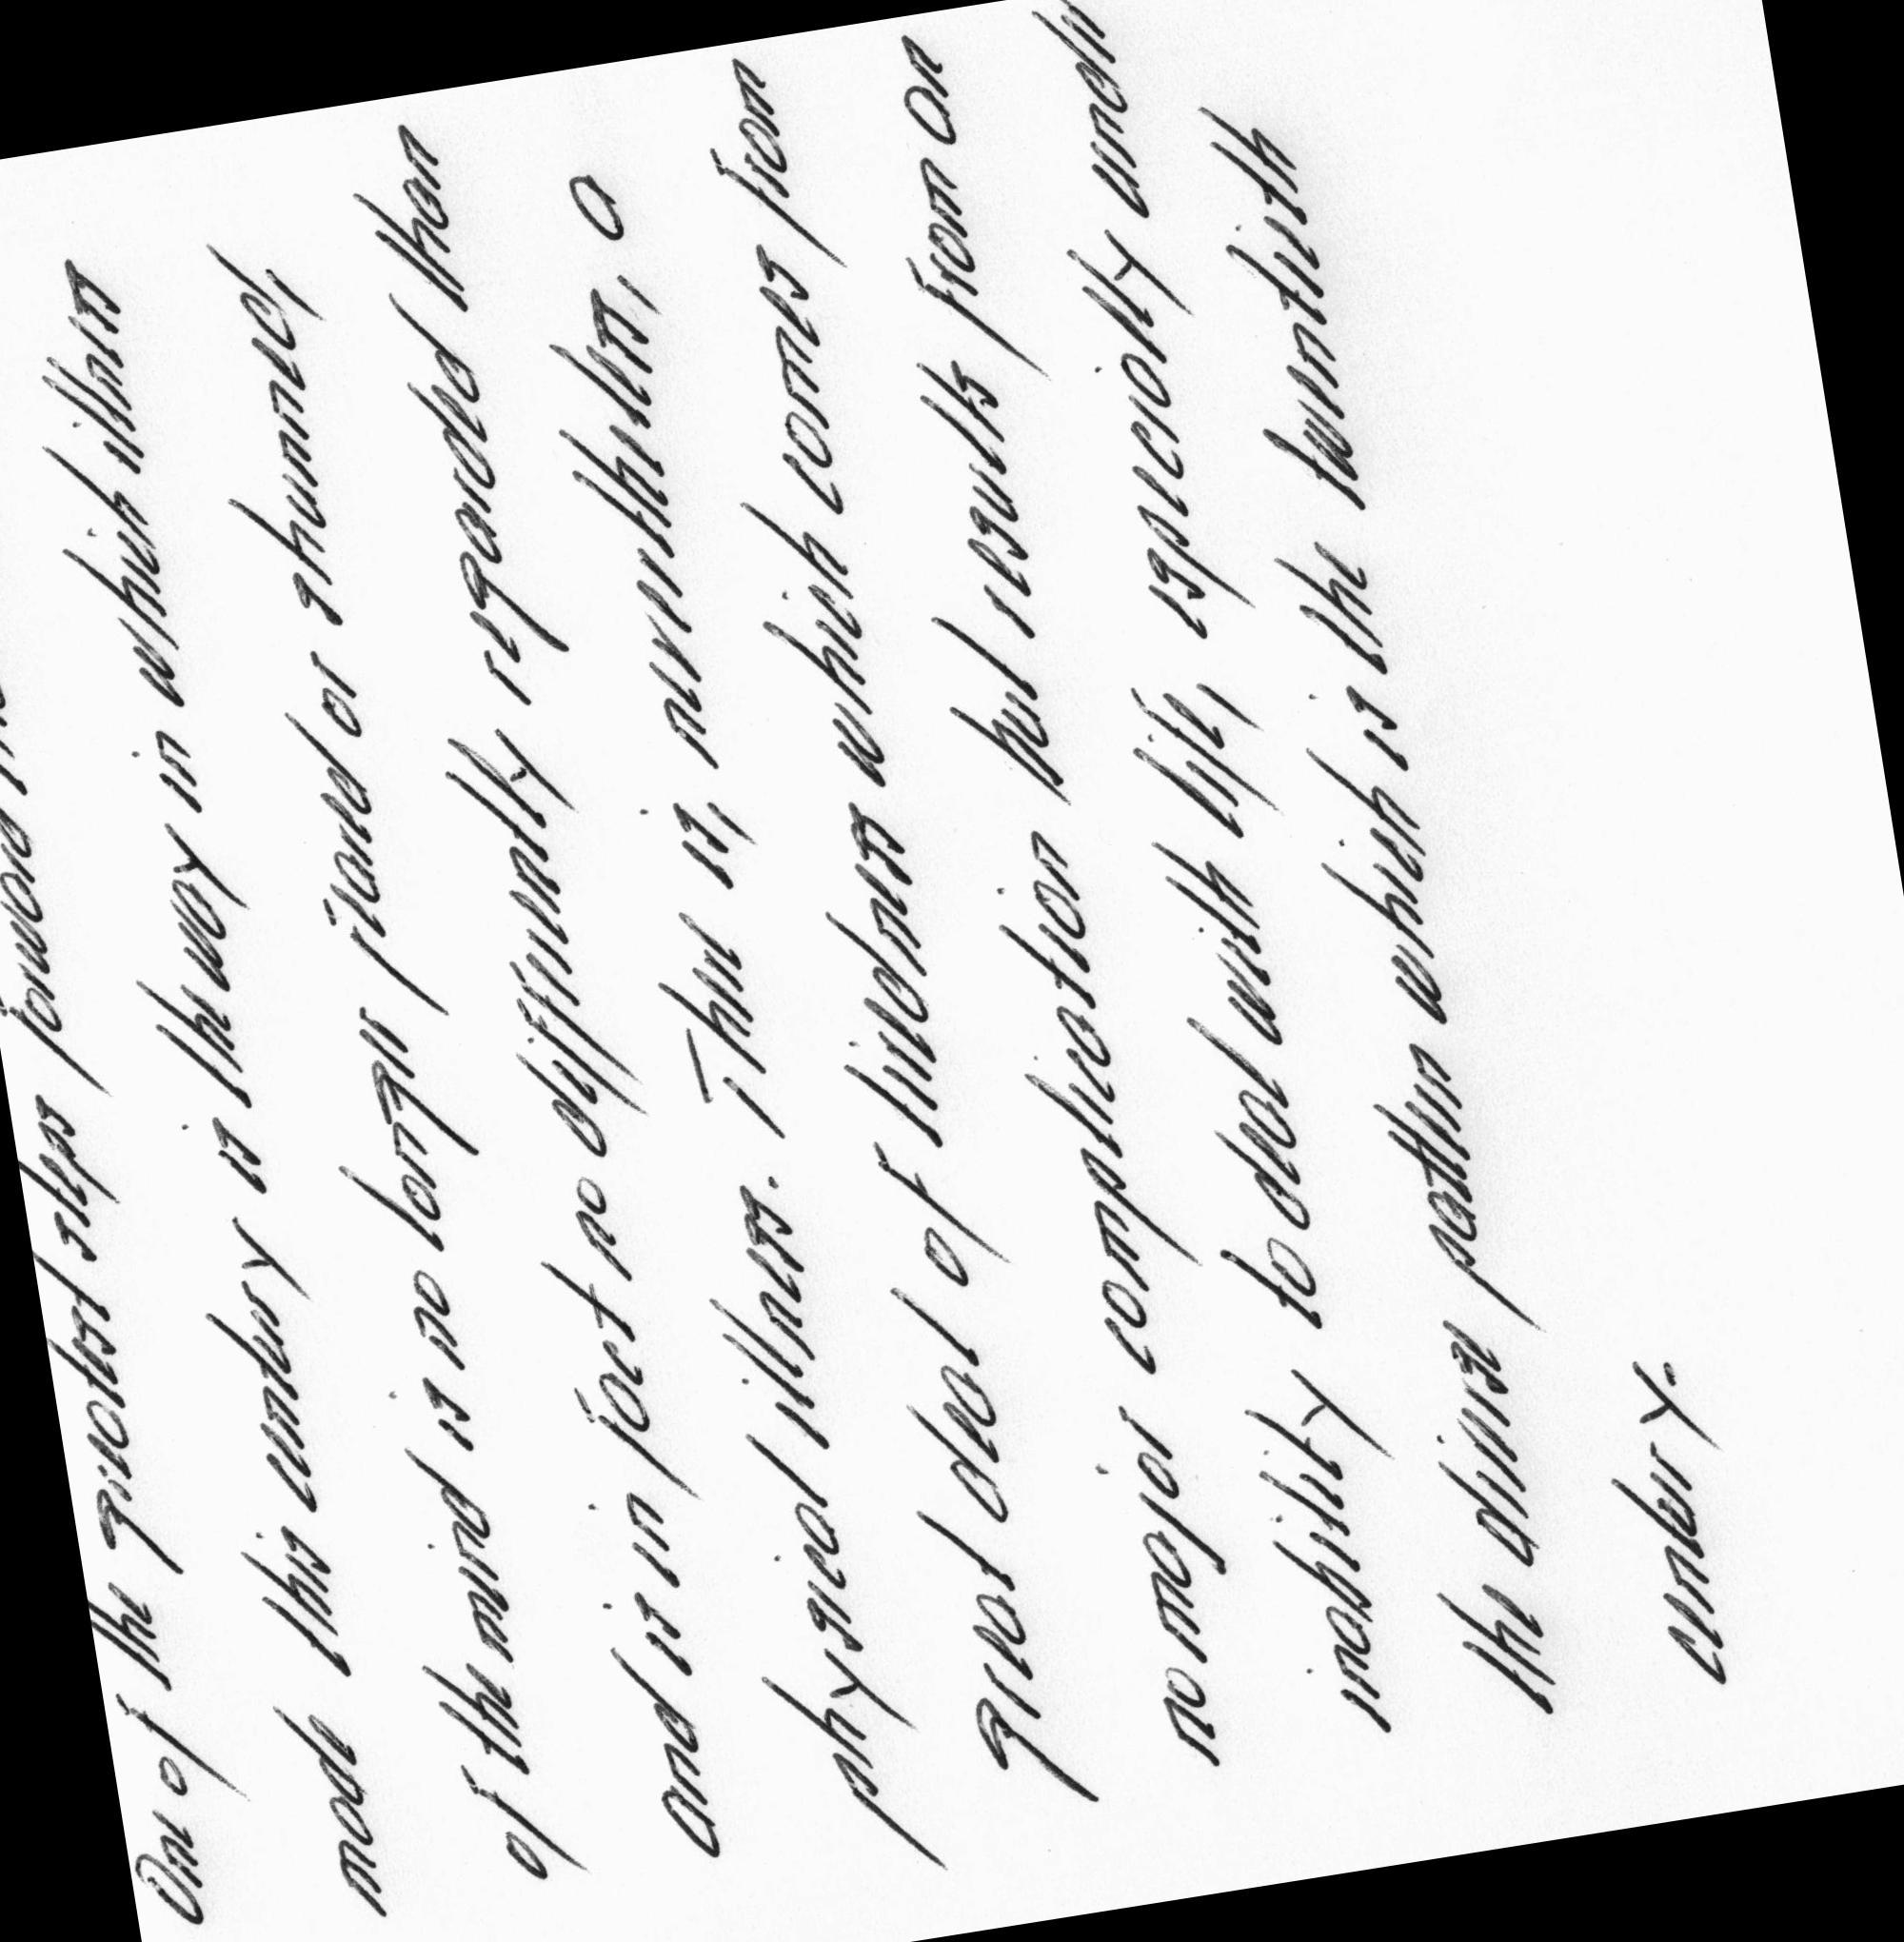 One of the greatest steps forward
made this century is the way in which illness
of the mind is no longer feared or shunned,
and is in fact no differently regarded than
physical illness. There is, nevertheless, a
great deal of tiredness which comes from
no major complication but results from an
inability to deal with life, especially
the diverse pattern which is the twentieth
century.